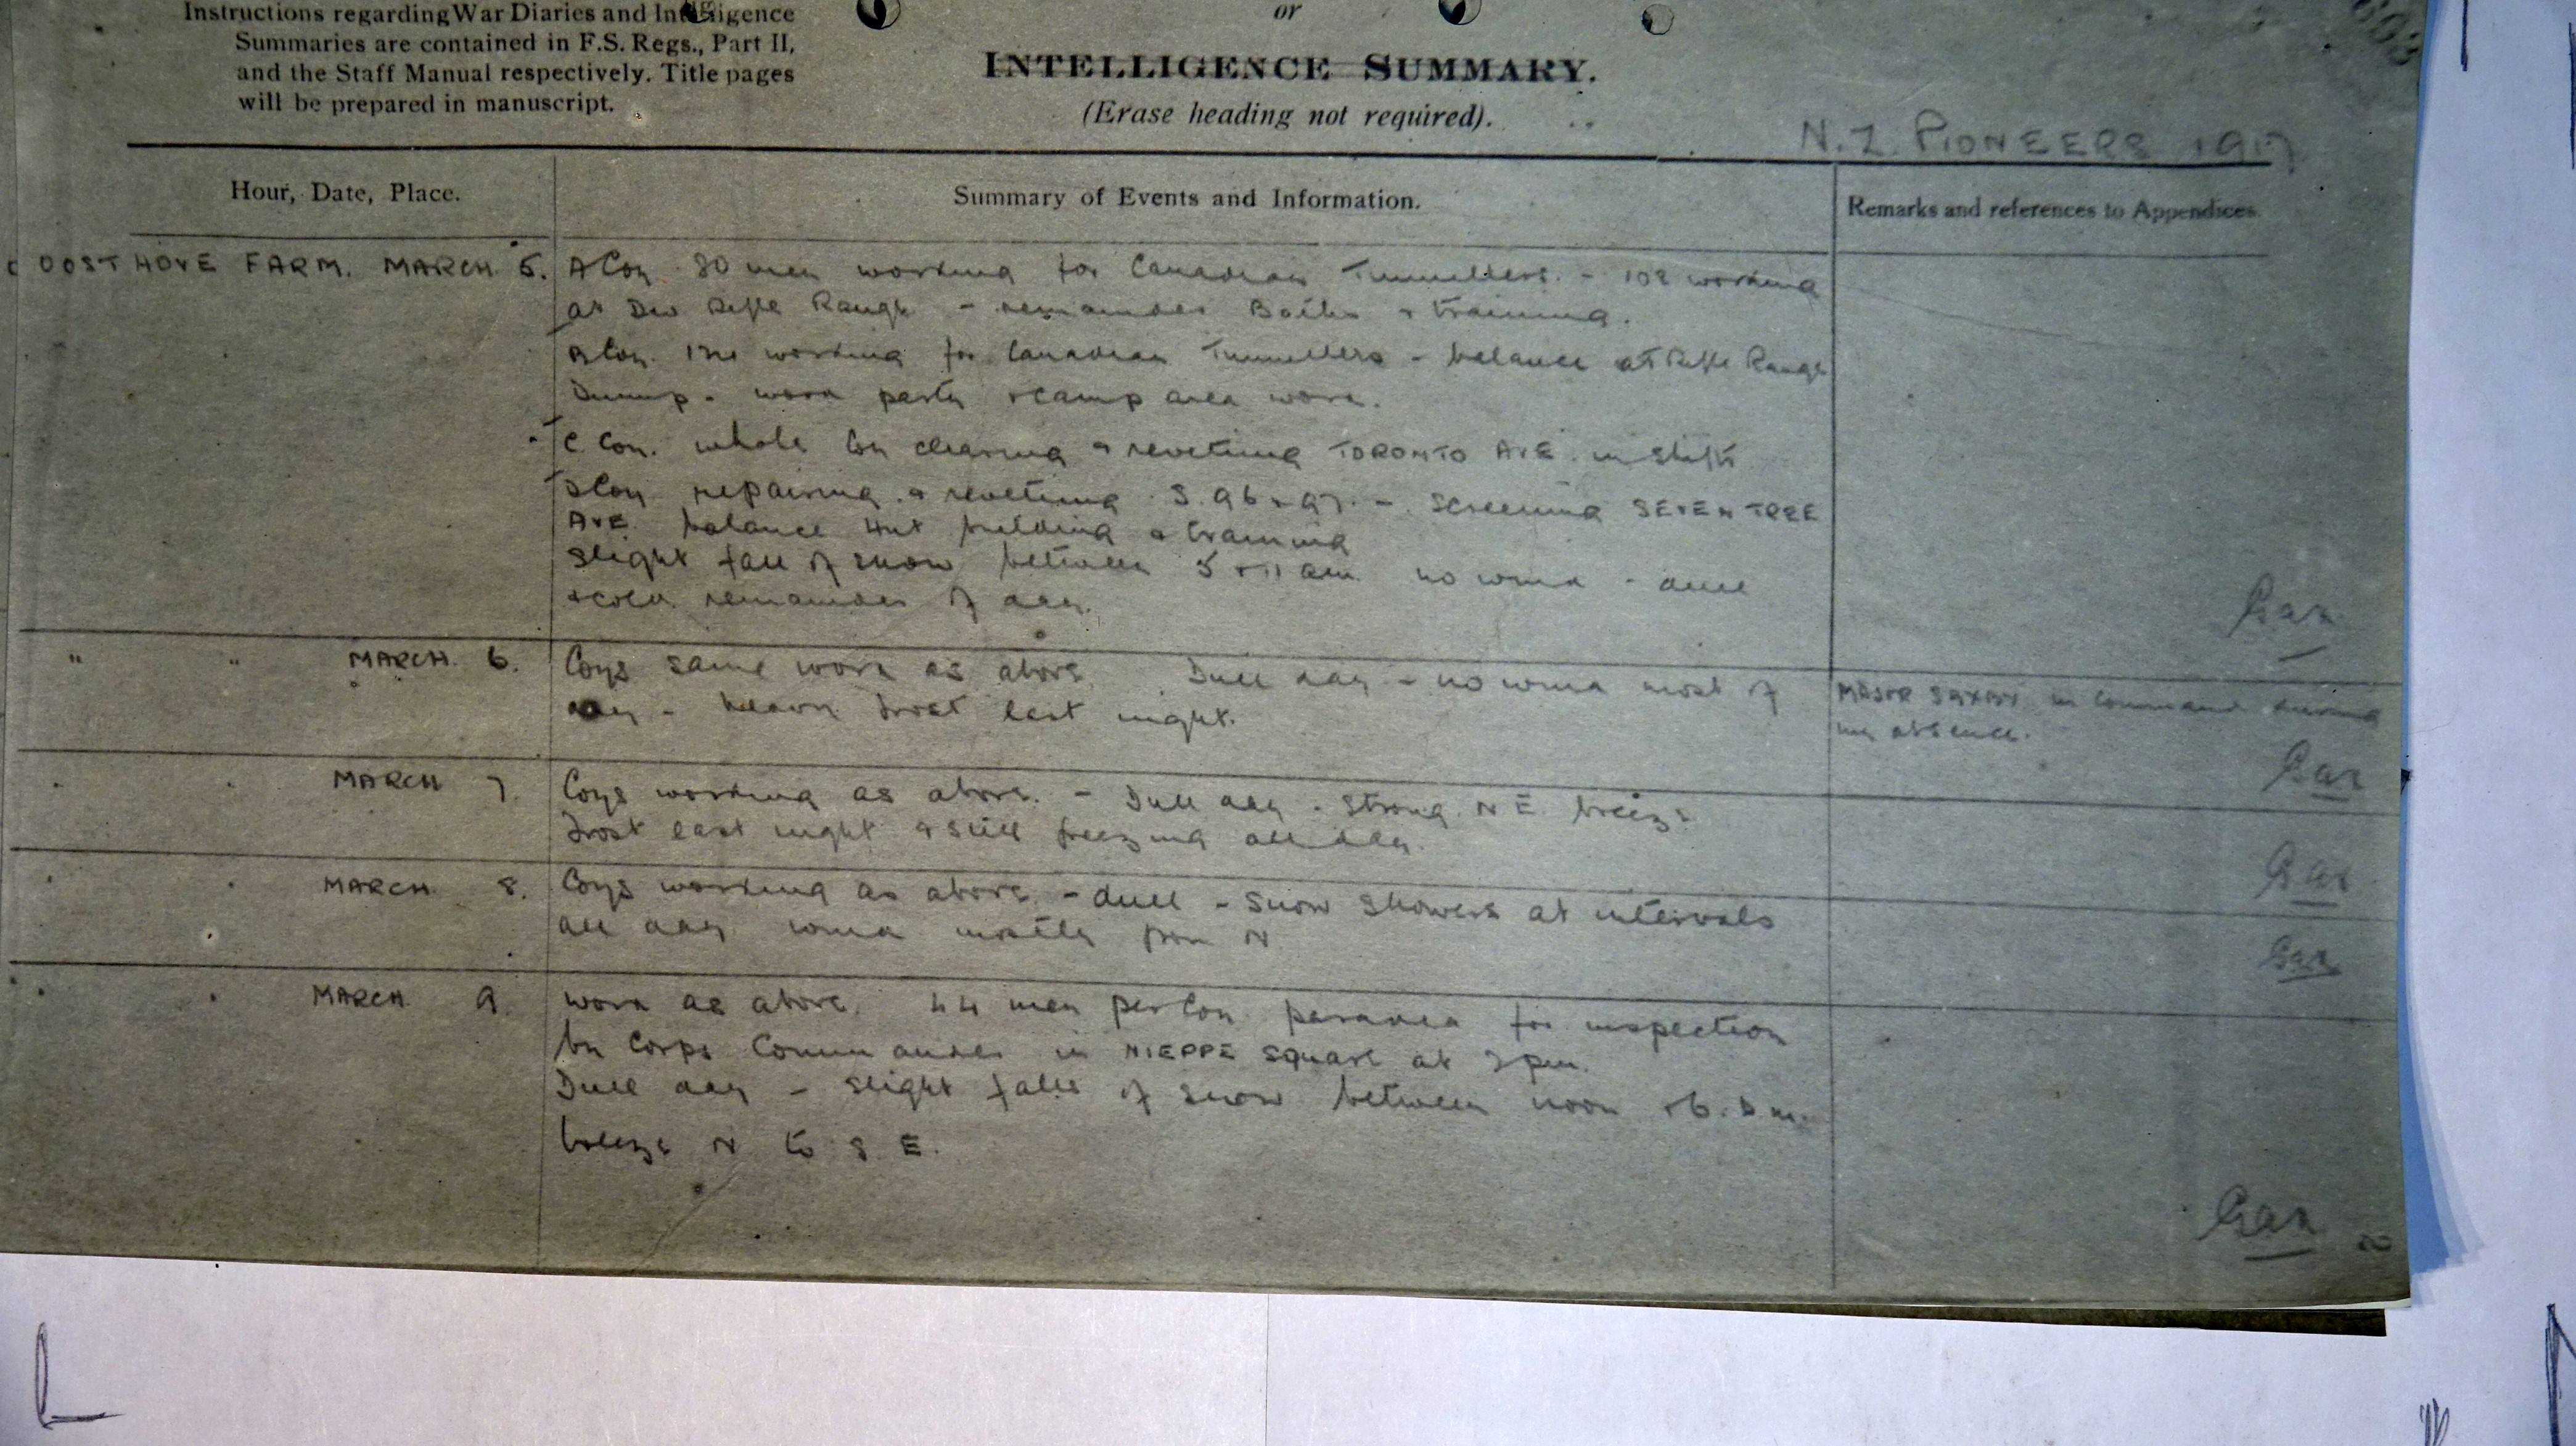 Instructions regarding War Diaries and Intelligence
Summaries are contained in F.S. Regs., Part II,
and the Staff Manual respectively. Title pages
will be prepared in manuscript.
or
INTELLIGENCE SUMMARY.
(Erase heading not required).
N.Z. PIONEERS 1917
Hour, Date, Place.
Summary of Events and Information.
Remarks and references to Appendices.
OOSTHOVE FARM. MARCH 5.
A Coy 80 men working for Canadian Tunnellers. - 102 working
at Div Rifle Range - remainder Baths & training.
B Coy. working for Canadian Tunnellers - balance at Rifle Range
Dump - work party & camp area work.
C Coy. whole Coy clearing & revetting TORONTO AVE. in shifts
D Coy repairing & revetting S. 96 & 97. - Screening SEVEN TREE
AVE balance Hut building & training
Slight fall of snow between 5 & 11 am. no wind - dull
& cold remainder of day.
" " MARCH. 6.
Coys same work as above. Dull day - no wind most of
day - heavy frost last night.
MAJOR SAXBY in command during
my absence.
MARCH 7.
Coys working as above. - Dull day - strong N E breeze
frost last night & still freezing all day.
MARCH 8.
Coys working as above - dull - snow showers at intervals
all day wind mostly from N
MARCH 9.
work as above. 44 men per Coy paraded for inspection
by Corps Commander in NIEPPE square at 2 pm.
Dull day - slight falls of snow between noon & 6. p.m.
breeze N to S E.
2